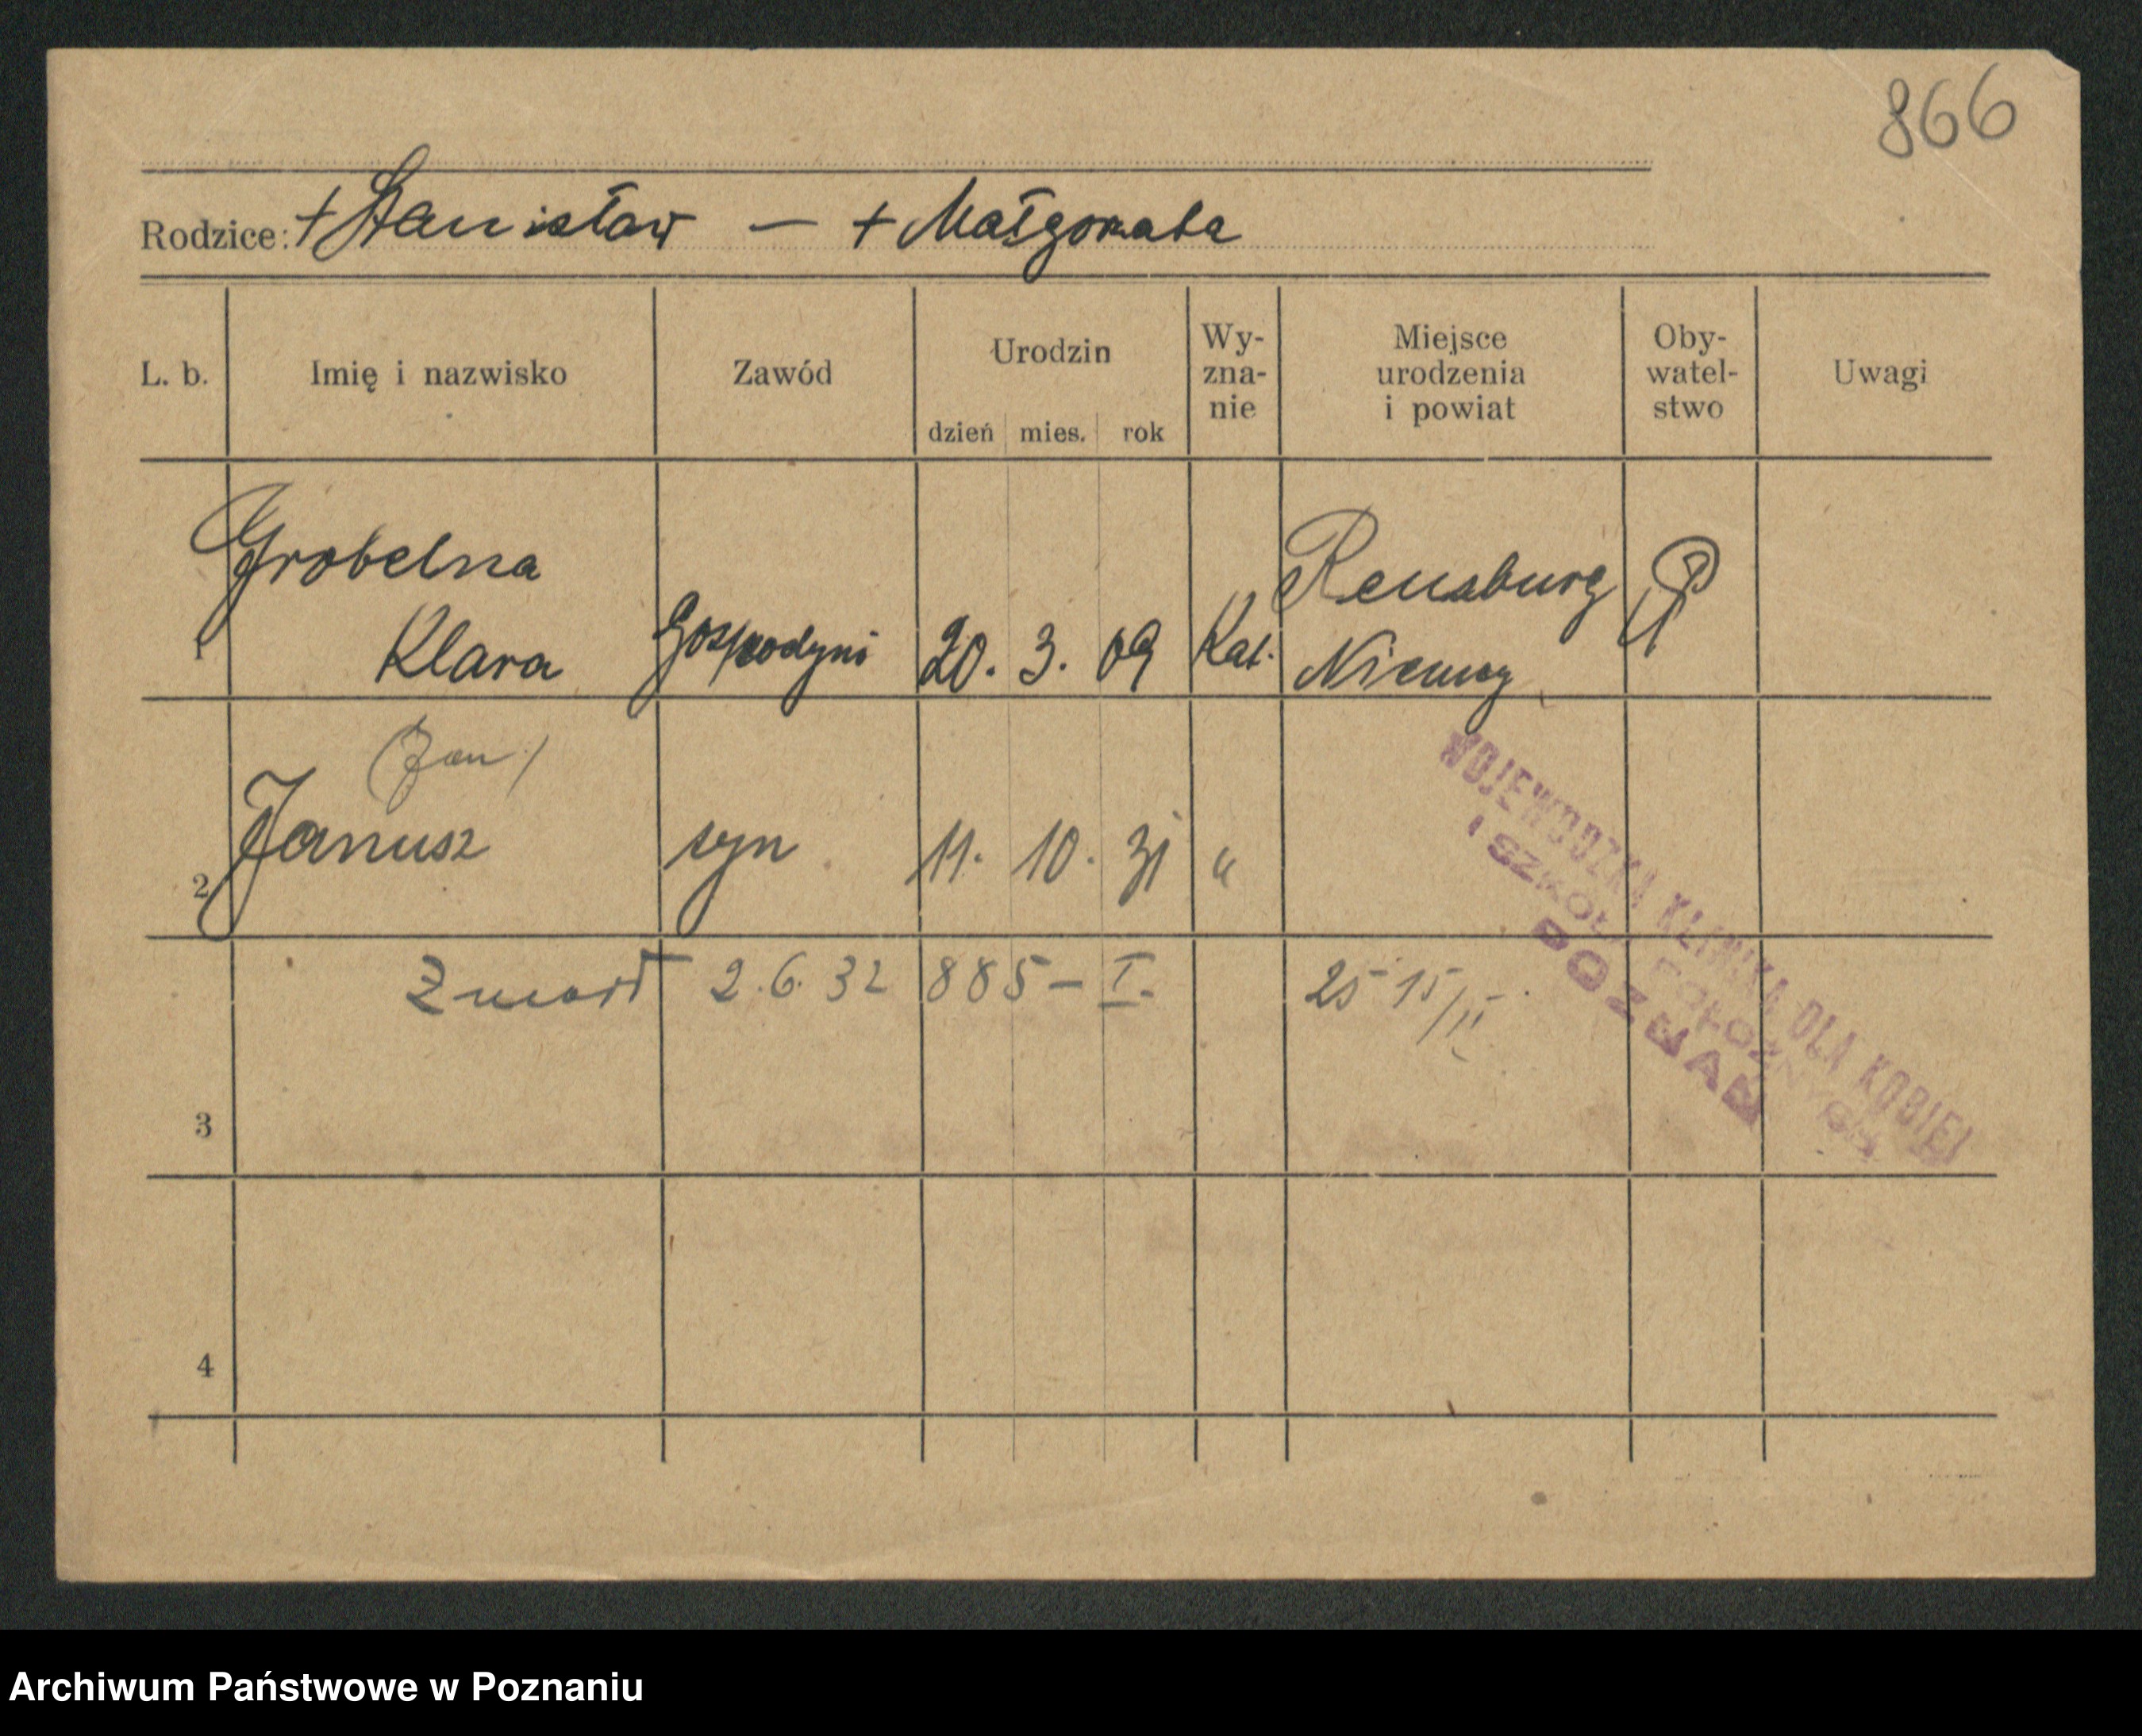 866
Rodzice: + Stanisław — + Małgorzata
L. b. Imię i nazwisko Zawód Urodzin dzień mies. rok Wy-zna-nie Miejsce urodzenia i powiat Oby-watel-stwo Uwagi
Grobelna Rensburg P
1 Klara Gospodyni 20. 3. 09 Kat. Niemcy
(Jan)
2 Janusz syn 11. 10. 31 "
Zmarł 2.6.32 885 – I. 25 15/II
WOJEWÓDZKA KLINIKA DLA KOBIET
I SZKOŁA POŁOŻNYCH
POZNAŃ
3
4
Archiwum Państwowe w Poznaniu